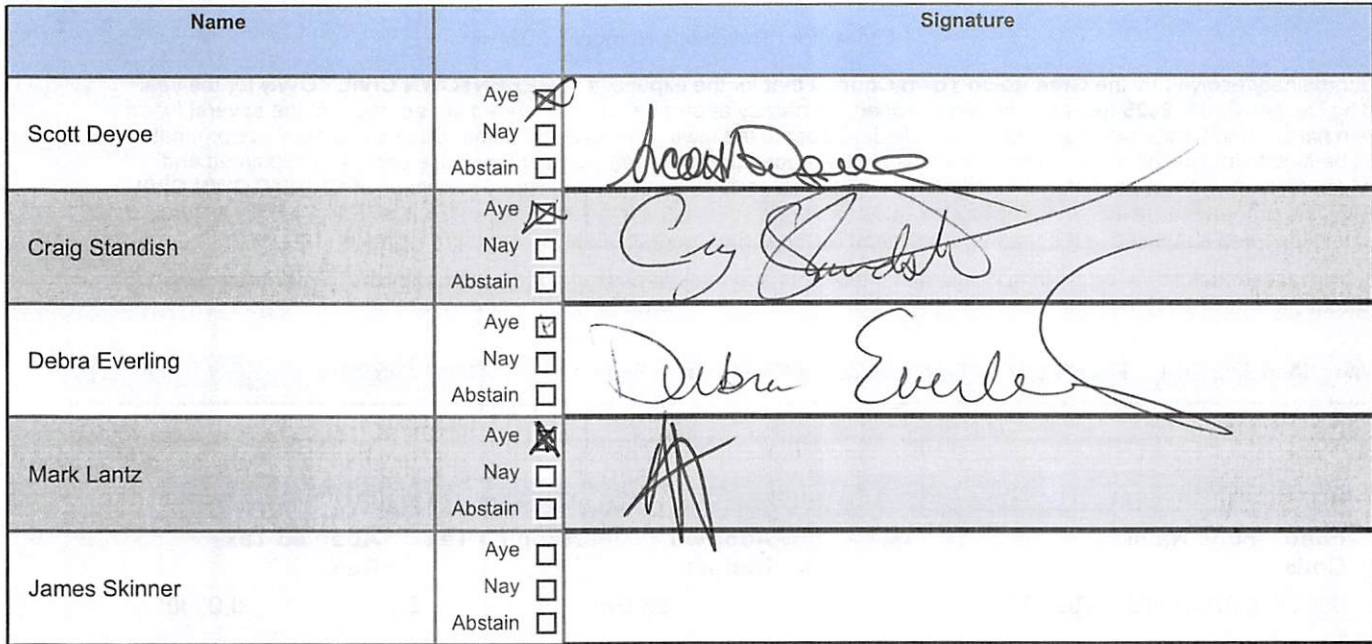 Name Signature
Scott Deyoe
Aye ☒
Nay ☐
Abstain ☐
Scott Deyoe
Craig Standish
Aye ☒
Nay ☐
Abstain ☐
Craig Standish
Debra Everling
Aye ☒
Nay ☐
Abstain ☐
Debra Everling
Mark Lantz
Aye ☒
Nay ☐
Abstain ☐
James Skinner
Aye ☐
Nay ☐
Abstain ☐